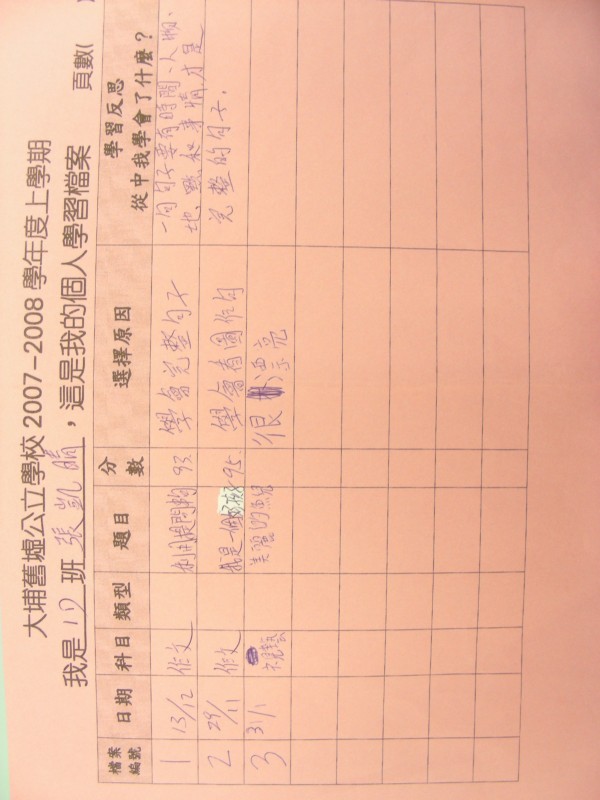 大埔舊墟公立學校 2007-2008 學年度上學期
我是 1D 班 張凱晴，這是我的個人學習檔案 頁數(
檔案編號 日期 科目 類型 題目 分數 選擇原因 學習反思
從中我學會了什麼？
1 13/12 作文 利用提問 93 學會完整句子 一句句子要有時間、人物、
地點和事情才是
完整的句子.
2 29/11 作文 我是一個 95 學會看圖作句
3 31/1 視藝 美麗的魚兒 很漂亮